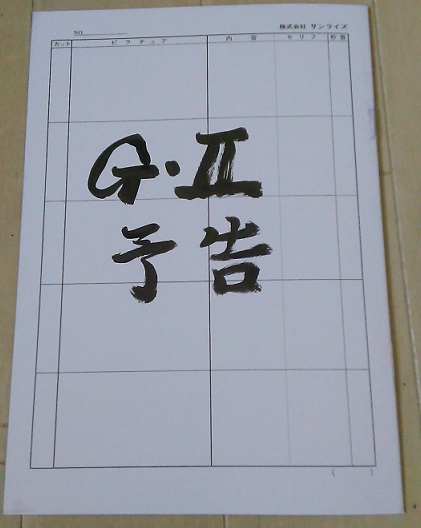 NO.
株式会社 サンライズ
カット ピクチュア 内容 セリフ 秒数
G・Ⅱ
予告
( )